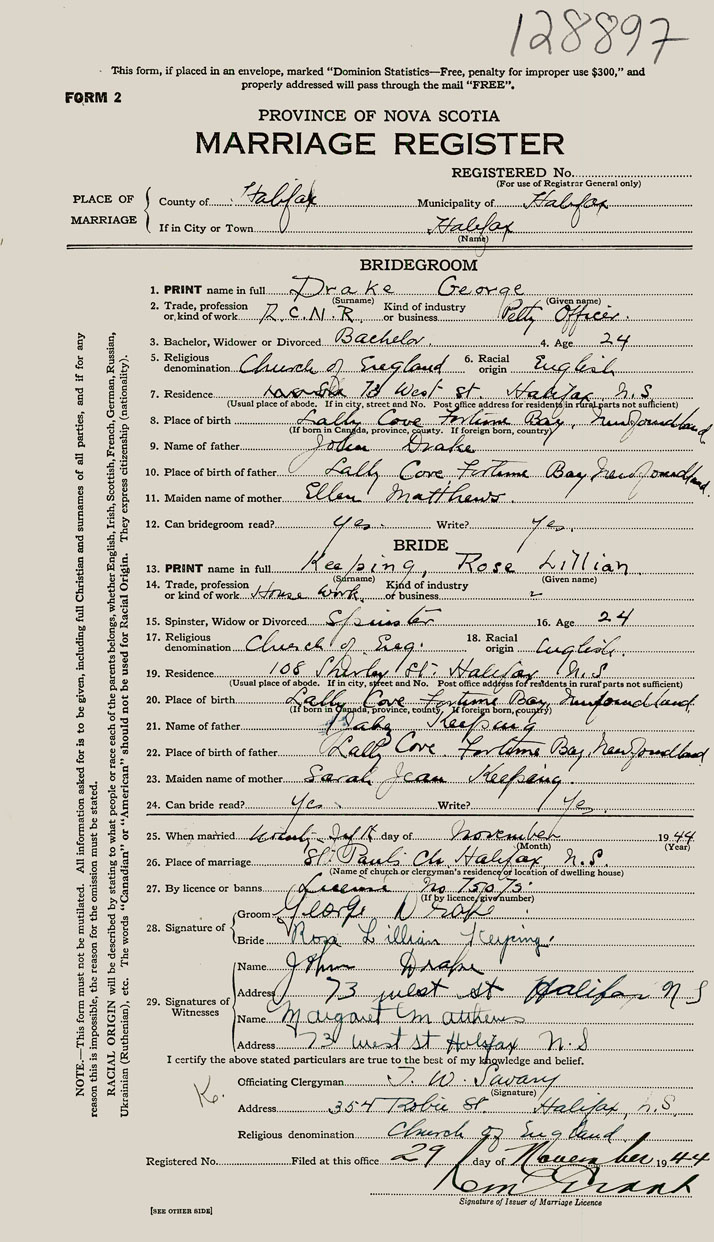 128897
This form, if placed in an envelope, marked "Dominion Statistics—Free, penalty for improper use $300," and
properly addressed will pass through the mail "FREE".
FORM 2
PROVINCE OF NOVA SCOTIA
MARRIAGE REGISTER
REGISTERED No.
(For use of Registrar General only)
PLACE OF MARRIAGE
County of Halifax Municipality of Halifax
If in City or Town Halifax
(Name)
BRIDEGROOM
1. PRINT name in full Drake George
(Surname) (Given name)
2. Trade, profession or kind of work R.C.N.R. Kind of industry or business Petty Officer.
3. Bachelor, Widower or Divorced Bachelor 4. Age 24
5. Religious denomination Church of England 6. Racial origin English
7. Residence 73 West St. Halifax, N.S.
(Usual place of abode. If in city, street and No. Post office address for residents in rural parts not sufficient)
8. Place of birth Lally Cove Fortune Bay, Newfoundland
(If born in Canada, province, county. If foreign born, country)
9. Name of father John Drake
10. Place of birth of father Lally Cove Fortune Bay Newfoundland.
11. Maiden name of mother Ellen Matthews.
12. Can bridegroom read? Yes. Write? Yes.
BRIDE
13. PRINT name in full Keeping, Rose Lillian
(Surname) (Given name)
14. Trade, profession or kind of work House Work. Kind of industry or business
15. Spinster, Widow or Divorced Spinster 16. Age 24
17. Religious denomination Church of Eng. 18. Racial origin English.
19. Residence 108 Shirley St. Halifax N.S
(Usual place of abode. If in city, street and No. Post office address for residents in rural parts not sufficient)
20. Place of birth Lally Cove Fortune Bay, Newfoundland.
(If born in Canada, province, county. If foreign born, country)
21. Name of father Keeping
22. Place of birth of father Lally Cove. Fortune Bay, Newfoundland
23. Maiden name of mother Sarah Jean Keeping.
24. Can bride read? Yes. Write? Yes.
25. When married day of November 1944
(Month) (Year)
26. Place of marriage St. Paul's Ch, Halifax, N.S.
(Name of church or clergyman's residence or location of dwelling house)
27. By licence or banns License No
(If by licence give number)
28. Signature of
Groom George Drake
Bride Rose Lillian Keeping.
29. Signatures of Witnesses
Name John Drake
Address 73 west st Halifax N S
Name Margaret Matthews
Address 73 west st Halifax N.S
I certify the above stated particulars are true to the best of my knowledge and belief.
K.
Officiating Clergyman T. W. Savary
(Signature)
Address 354 Robie St. Halifax, N.S.
Religious denomination Church of England
Registered No. Filed at this office 29 day of November 1944
Signature of Issuer of Marriage Licence
[SEE OTHER SIDE]
NOTE.—This form must not be mutilated. All information asked for is to be given, including full Christian and surnames of all parties, and if for any
reason this is impossible, the reason for the omission must be stated.
RACIAL ORIGIN will be described by stating to what people or race each of the parents belongs, whether English, Irish, Scottish, French, German, Russian,
Ukrainian (Ruthenian), etc. The words "Canadian" or "American" should not be used for Racial Origin. They express citizenship (nationality).